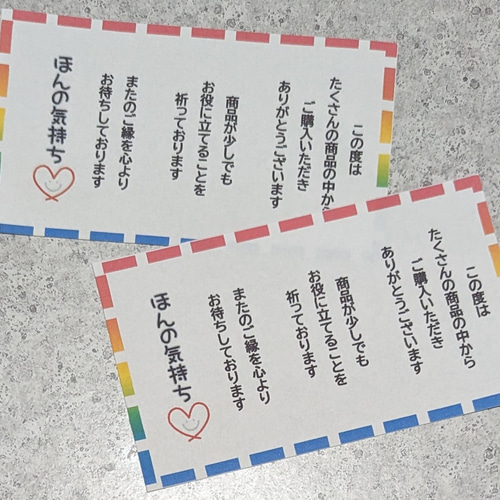 この度は
たくさんの商品の中から
ご購入いただき
ありがとうございます
商品が少しでも
お役に立てることを
祈っております
またのご縁を心より
お待ちしております
ほんの気持ち
この度は
たくさんの商品の中から
ご購入いただき
ありがとうございます
商品が少しでも
お役に立てることを
祈っております
またのご縁を心より
お待ちしております
ほんの気持ち